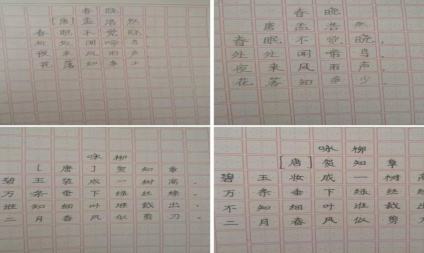 春晓
[唐]孟浩然
春眠不觉晓
处处闻啼鸟
夜来风雨声
花落知多少
春晓
唐 孟浩然
春眠不觉晓，
处处闻啼鸟
夜来风雨声，
花落知多少。
咏柳
[唐]贺知章
碧玉妆成一树高，
万条垂下绿丝绦。
谁知细叶谁裁出，
二月春风似剪刀。
咏柳
[唐]贺知章
碧玉妆成一树高
万条垂下绿丝
不知细叶谁裁出
二月春风似剪刀